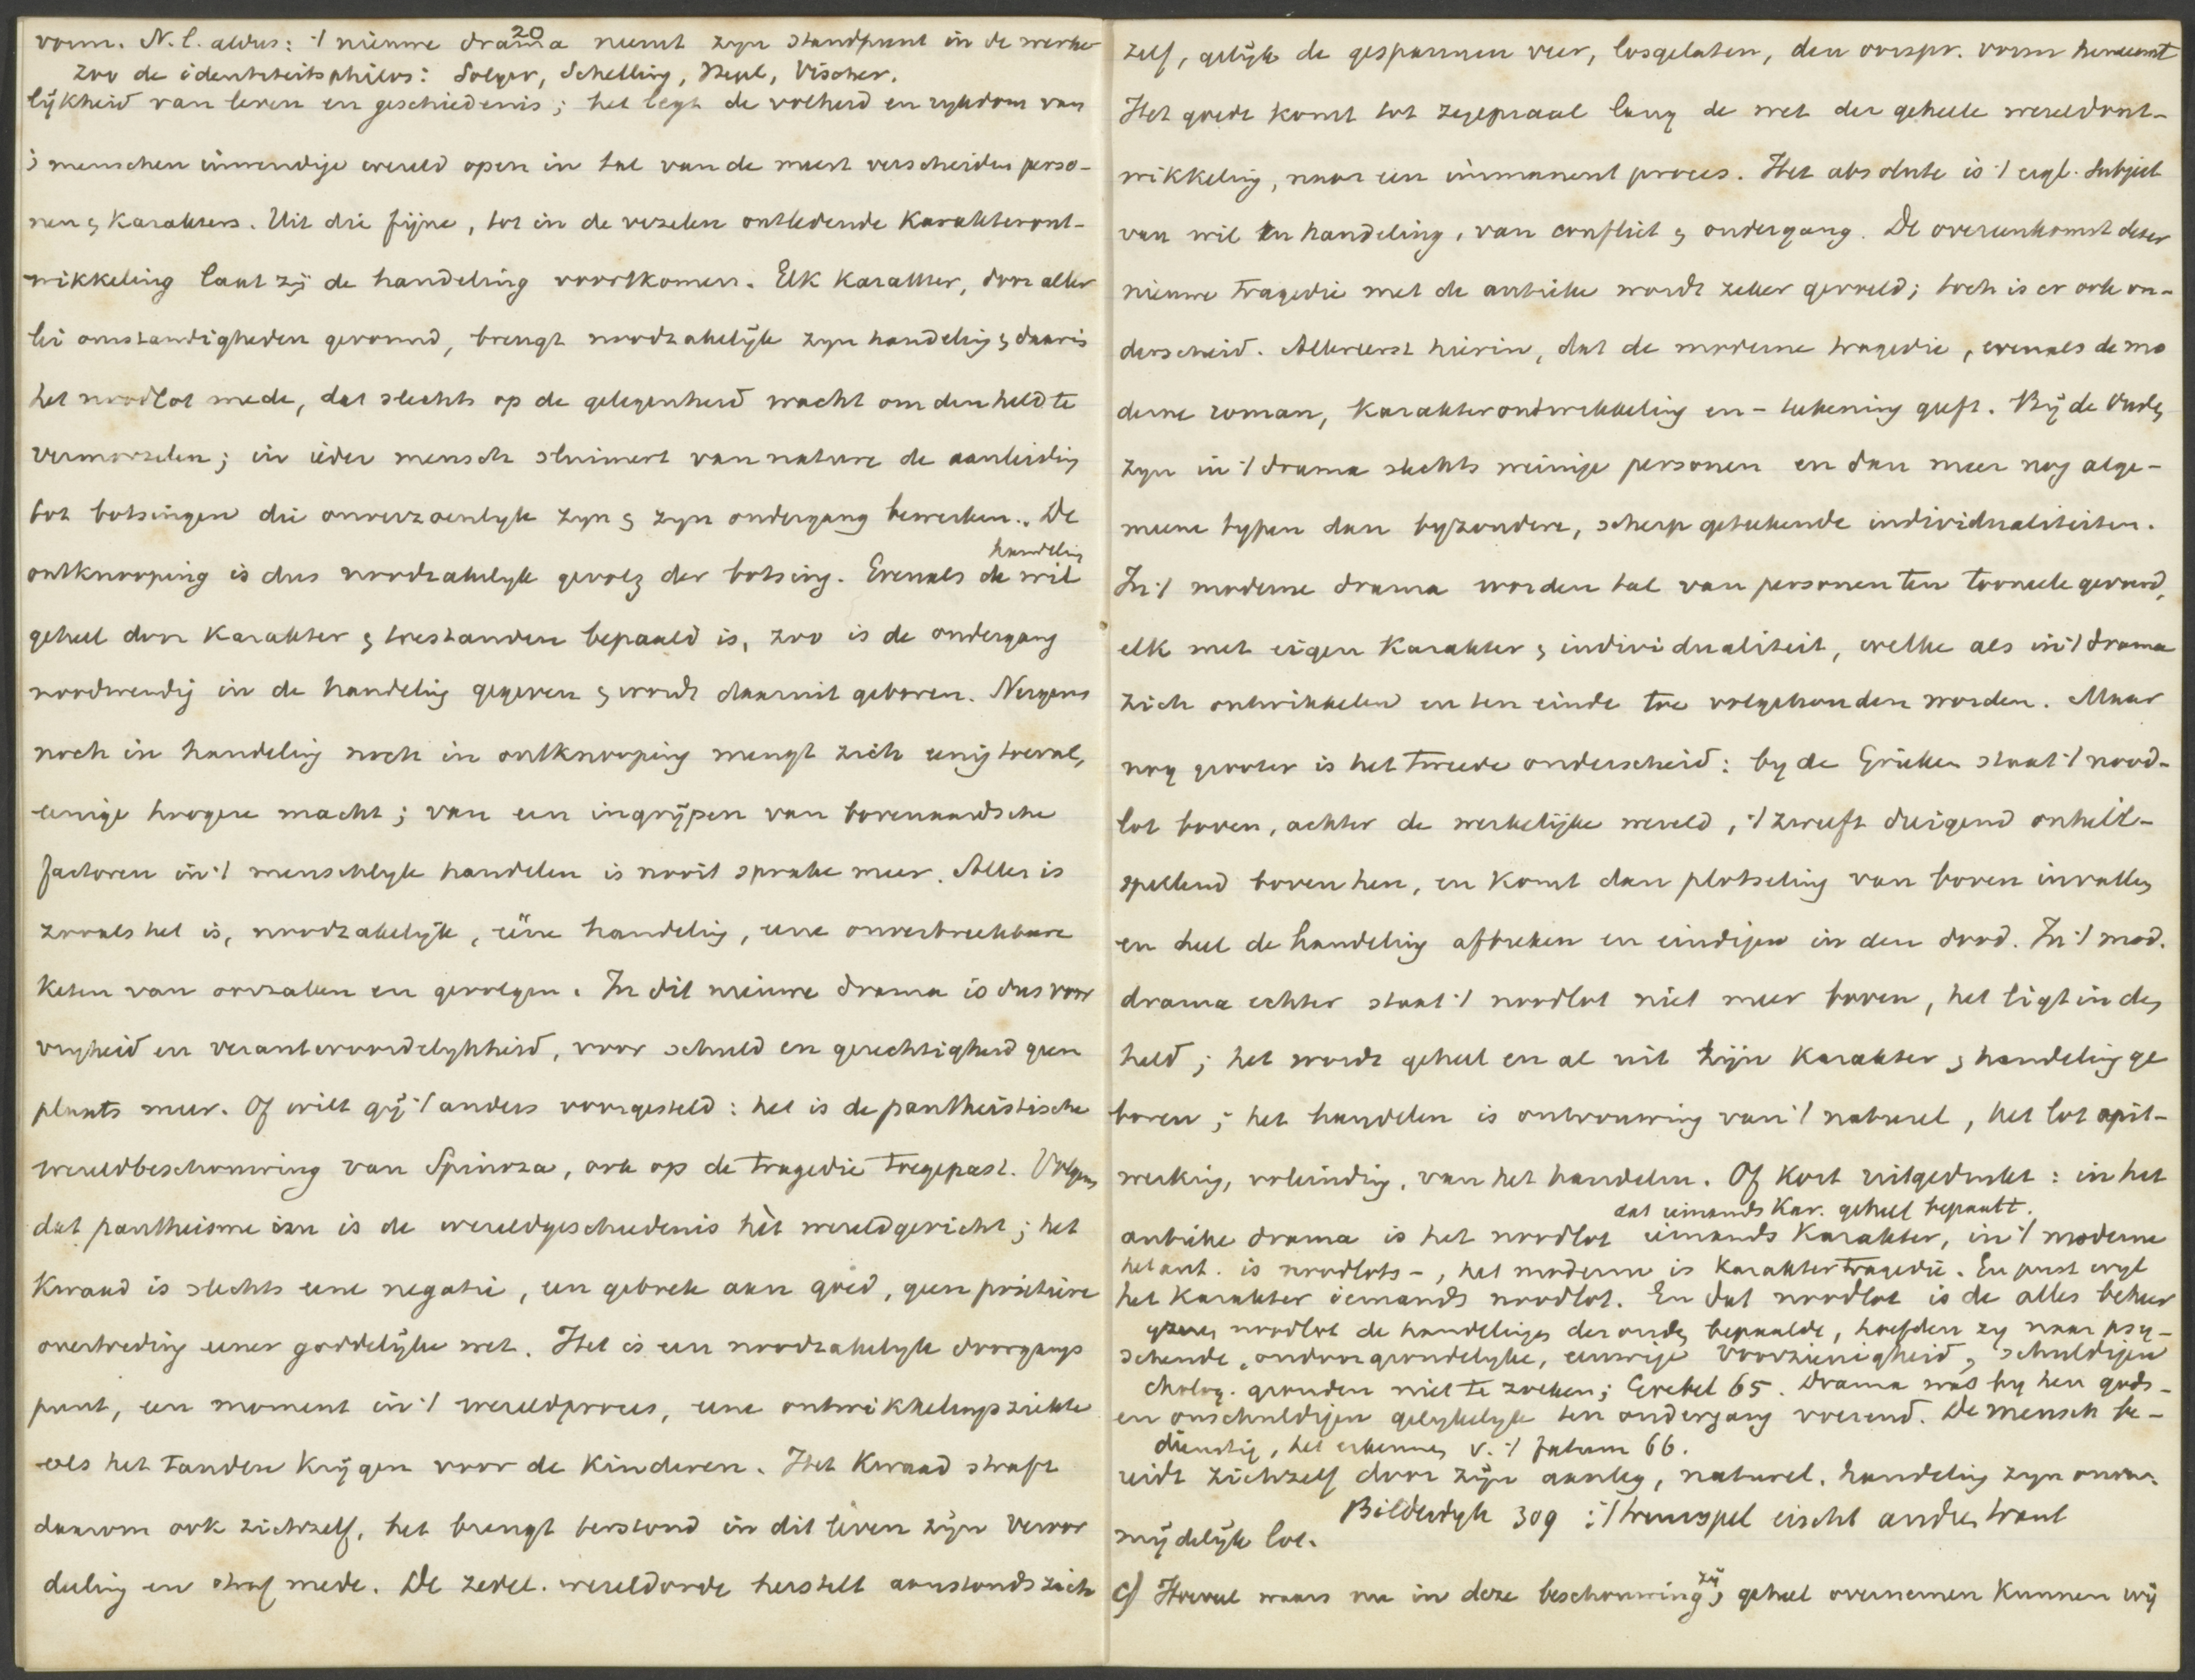 20
vorm. N.l. aldus: 't nieuwe drama neemt zyn standpunt in de werke
zoo de identiteitsphilos: Solger, Schelling, Hegel, Vischer.
lijkheid van leven en geschiedenis; het legt de volheid en rykdom van
's menschen inwendige wereld open in tal van de meest verscheiden perso-
nen & karakters. Uit die fijne, tot in de vezelen ontledende karakteront-
wikkeling laat zij de handeling voortkomen. Elk karakter, door aller
lei omstandigheden gevormd, brengt noodzakelijk zyn handeling & daaris
het noodlot mede, dat slechts op de gelegenheid wacht om den held te
vermorzelen; in ieder mensch sluimert van nature de aanleiding
tot botsingen die onverzoenlyk zyn & zyn ondergang bewerken. De
handeling
ontknooping is dus noodzakelyk gevolg der botsing. Evenals de wil
geheel door karakter & toestanden bepaald is, zoo is de ondergang
noodwendig in de handeling gegeven & wordt daaruit geboren. Nergens
noch in handeling noch in ontknooping mengt zich eenig toeval,
eenige hoogere macht; van een ingrijpen van bovenaardsche
factoren in 't menschlyk handelen is nooit sprake meer. Alles is
zooals het is, noodzakelijk, ééne handeling, eene onverbreekbare
keten van oorzaken en gevolgen. In dit nieuwe drama is dus voor
vryheid en verantwoordelykheid, voor schuld en gerechtigheid geen
plaats meer. Of wilt gij 't anders voorgesteld: het is de pantheistische
wereldbeschouwing van Spinoza, ook op de tragedie toegepast. Volgens
dat pantheisme is de wereldgeschiedenis hèt wereldgericht; het
kwaad is slechts eene negatie, een gebrek aan goed, geen positieve
overtreding eener goddelijke wet. Het is een noodzakelyk doorgangs
punt, een moment in 't wereldproces, eene ontwikkelingsziekte
als het tanden krijgen voor de kinderen. Het kwaad straft
daarom ook zichzelf, het brengt terstond in dit leven zijn veroor
deeling en straf mede. De zedel. wereldorde herstelt aanstonds zich
zelf, gelijk de gespannen veer, losgelaten, den oorspr. vorm herneemt
Het goede komt tot zegepraal langs de wet der geheele wereldont-
wikkeling, naar een immanent proces. Het absolute is 't eigl. subject
van wil en handeling, van conflict & ondergang. De overeenkomst dezer
nieuwe tragedie met de antieke wordt zeker gevoeld; toch is er ook on-
derscheid. Allereerst hierin, dat de moderne tragedie, evenals de mo
derne roman, karakterontwikkeling en -teekening geeft. Bij de Ouden
zyn in 't drama slechts weinige personen en dan meer nog alge-
meene typen dan byzondere, scherp geteekende individualiteiten.
In 't moderne drama worden tal van personen ten tooneele gevoerd,
elk met eigen karakter & individualiteit, welke als in 't drama
zich ontwikkelend en ten einde toe volgehouden worden. Maar
nog grooter is het tweede onderscheid: by de Grieken staat 't nood-
lot boven, achter de werkelijke wereld, 't zweeft dreigend onheil-
spellend boven hen, en komt dan plotseling van boven invallen
en heel de handeling afbreken en eindigen in den dood. In 't mod.
drama echter staat 't noodlot niet meer boven, het ligt in den
held; het wordt geheel en al uit zijn karakter & handeling ge
boren; het handelen is ontvouwing van 't natureel, het lot
werking, voleinding, van het handelen. Of kort uitgedrukt: in het
dat iemands kar. geheel bepaalt.
antieke drama is het noodlot iemands karakter, in 't moderne
het ant. is noodlots-, het moderne is karaktertragedie. En juist wyl
het karakter iemands noodlot. En dat noodlot is de alles beheer
noodlot de handelingen der ouden bepaalde, hoefden zy naar psy-
schende, ondoorgrondelyke, eeuwige voorzienigheid, schuldigen
cholog. gronden niet te zoeken; 65. Drama was by hen gods-
en onschuldigen gelykelyk ten ondergang voerend. De mensch be-
dienstig, het erkennen v. 't fatum 66.
reidt zichzelf door zijn aanleg, natureel, handeling zyn onver-
Bilderdyk 309: 't treurspel eischt andren trant
mijdelijk lot.
c) Hoeveel waars nu in deze beschouwing zij, geheel overnemen kunnen wij